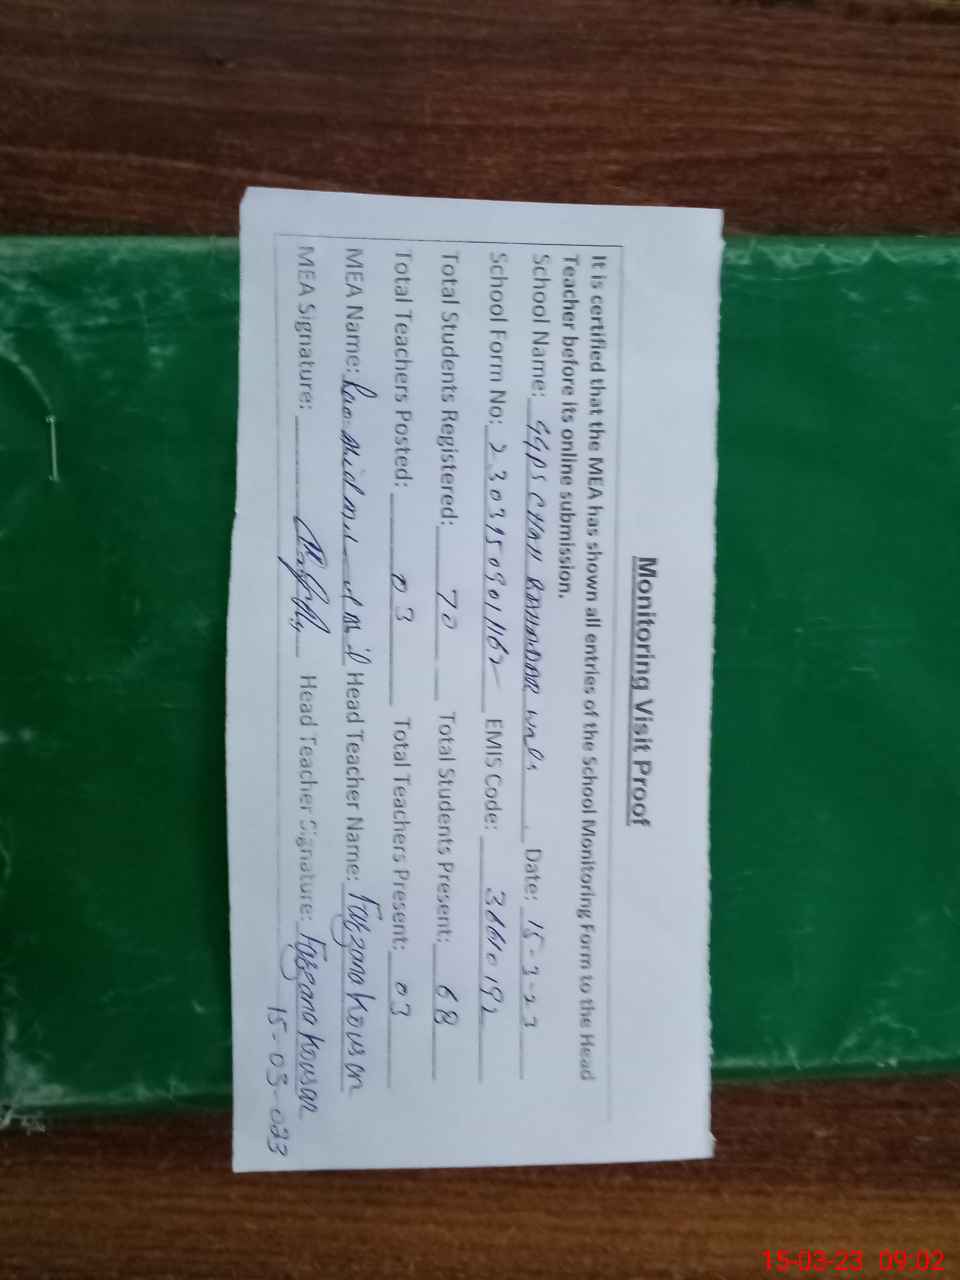 Monitoring Visit Proof
It is certified that the MEA has shown all entries of the School Monitoring Form to the Head
Teacher before its online submission.
School Name: GGPS CHAH Date: 15-3-23
School Form No: 2303150901162 EMIS Code:
Total Students Registered: 70 Total Students Present: 68
Total Teachers Posted: 03 Total Teachers Present: 03
MEA Name: Head Teacher Name: Farzana Kousar
MEA Signature: Head Teacher Signature: Farzana Kousar
15-03-023
15-03-23 09:02